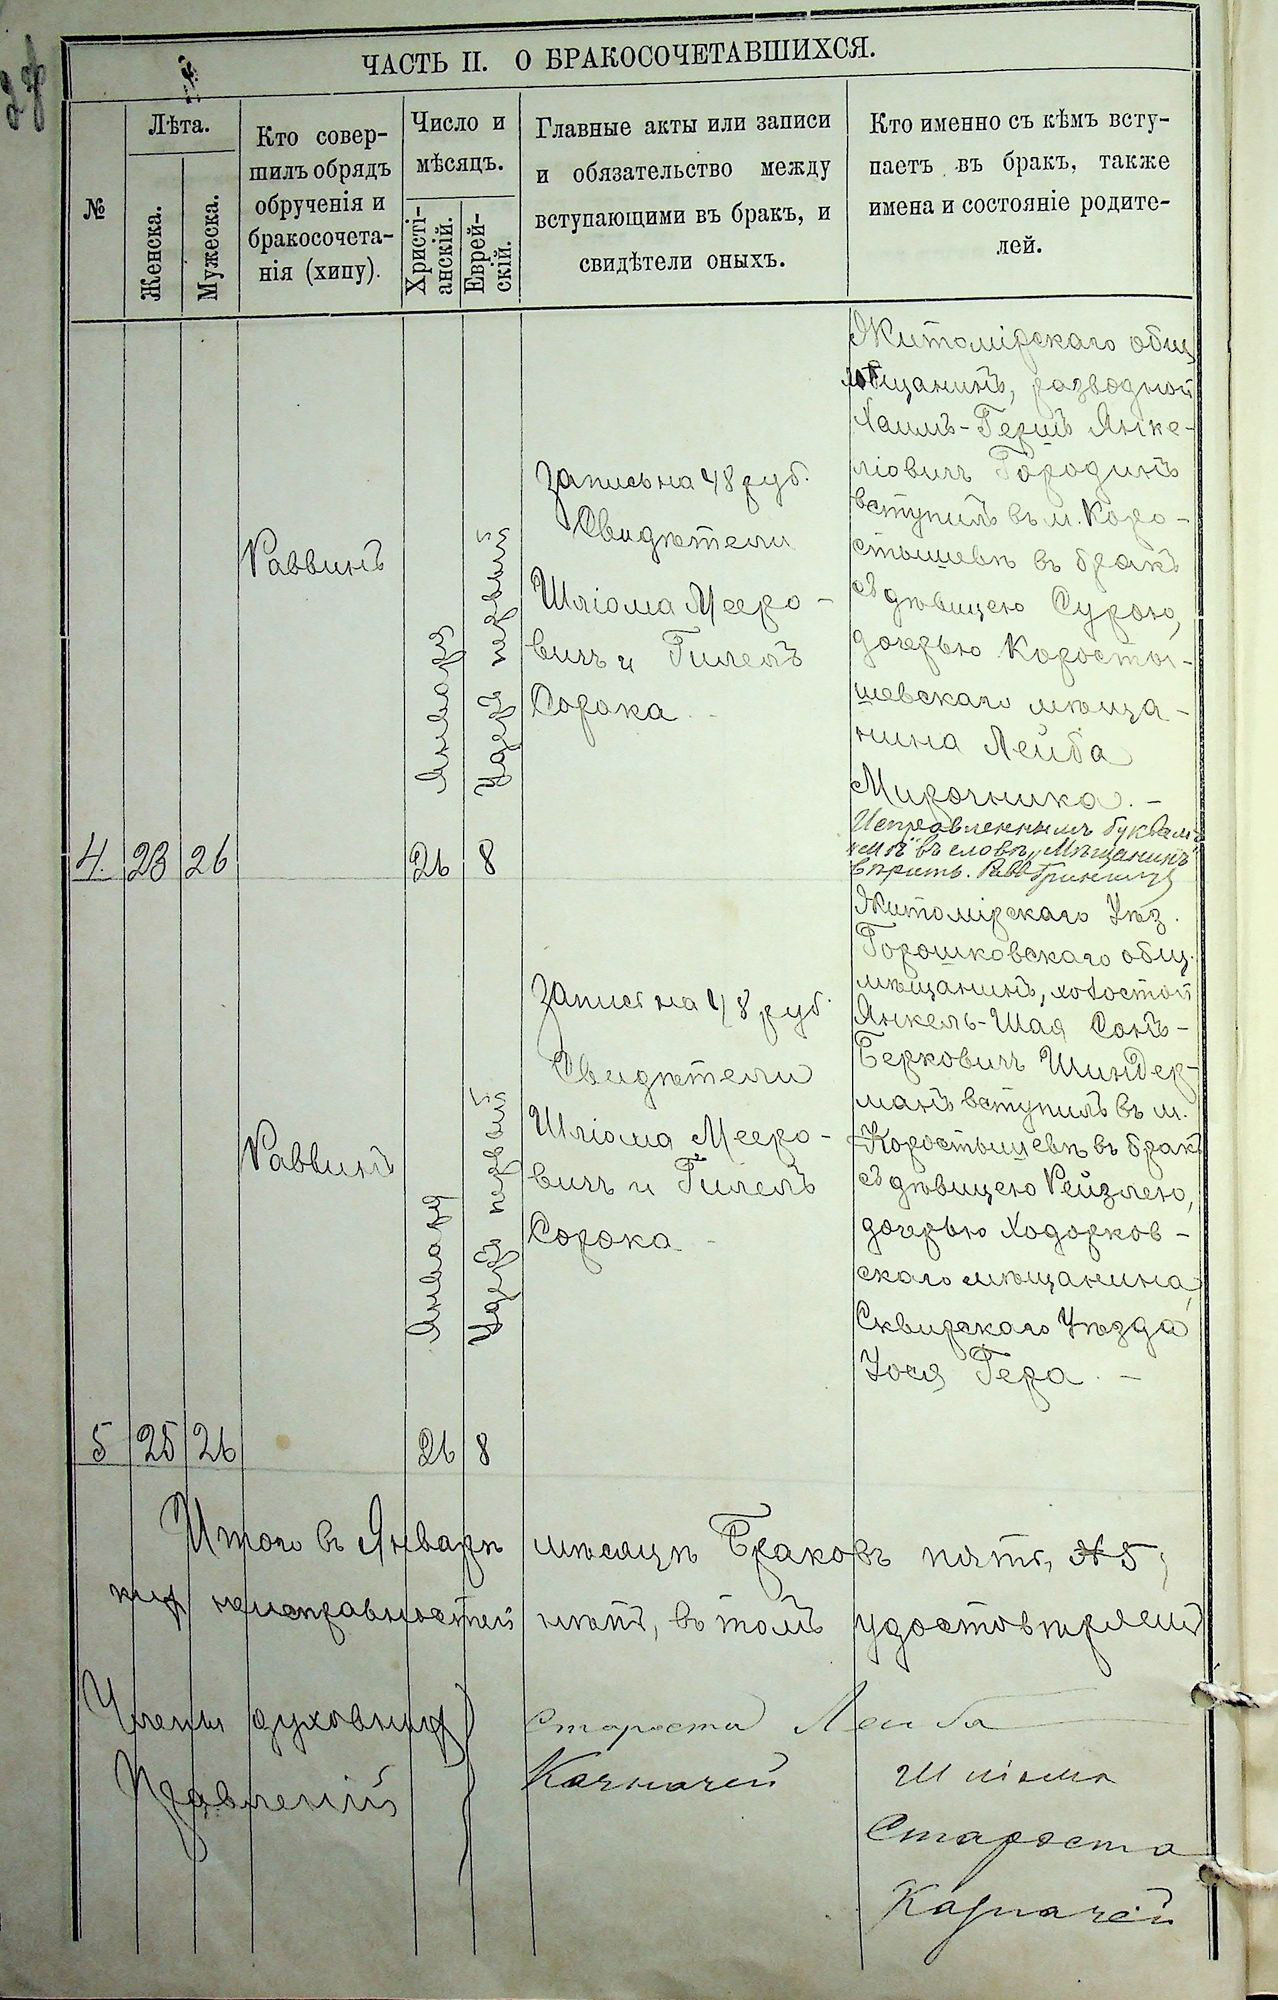 ЧАСТЬ II. О БРАКОСОЧЕТАВШИХСЯ.
№
Лѣта.
Женска.
Мужеска.
Кто совер-
шилъ обрядъ
обрученія и
бракосочета-
нія (хипу).
Число и
мѣсяцъ.
Христі-
анскій.
Еврей-
скій.
Главные акты или записи
и обязательство между
вступающими въ бракъ, и
свидѣтели оныхъ.
Кто именно съ кѣмъ всту-
паетъ въ бракъ, также
имена и состояніе родите-
лей.
4.
23
26
Раввинъ
Января
26
Удера первый
8
Запись на 48 руб.
Свидѣтели
Шліома Мееро-
вичъ и Гилель
Сорока
Житомірскаго общ.
мѣщанинъ, разводной
Хаимъ-Гершъ Янке-
ліовичъ Городинъ
вступилъ въ м. Коро-
стышевѣ въ бракъ
съ дѣвицею Сурою,
дочерью Коросты-
шевскаго мѣща-
нина Лейба
Мирочника. -
Исправленнымъ буквамъ
"въ словѣ "Мѣщанинъ"
вѣрить. Равв
5
25
26
Раввинъ
Января
26
Удера первый
8
Запись на 48 руб.
Свидѣтели
Шліома Мееро-
вичъ и Гилель
Сорока -
Житомірскаго Уѣз.
Горошковскаго общ.
мѣщанинъ, холостой
Янкель-Шая
Берковичъ Шиндер-
манъ вступилъ въ м.
Коростышевѣ въ бракъ
съ дѣвицею Рейзлею,
дочерью Ходорков-
скаго мѣщанина,
Сквирскаго Уѣзда
Уося Гера. -
Итого въ Январѣ мѣсяцѣ Браковъ пять, № 5,
неисправностей нѣтъ, въ томъ удостовѣряемъ
Члены духовныхъ
Правленій
Староста Лейба
Казначей Шліома
Староста
Казначей